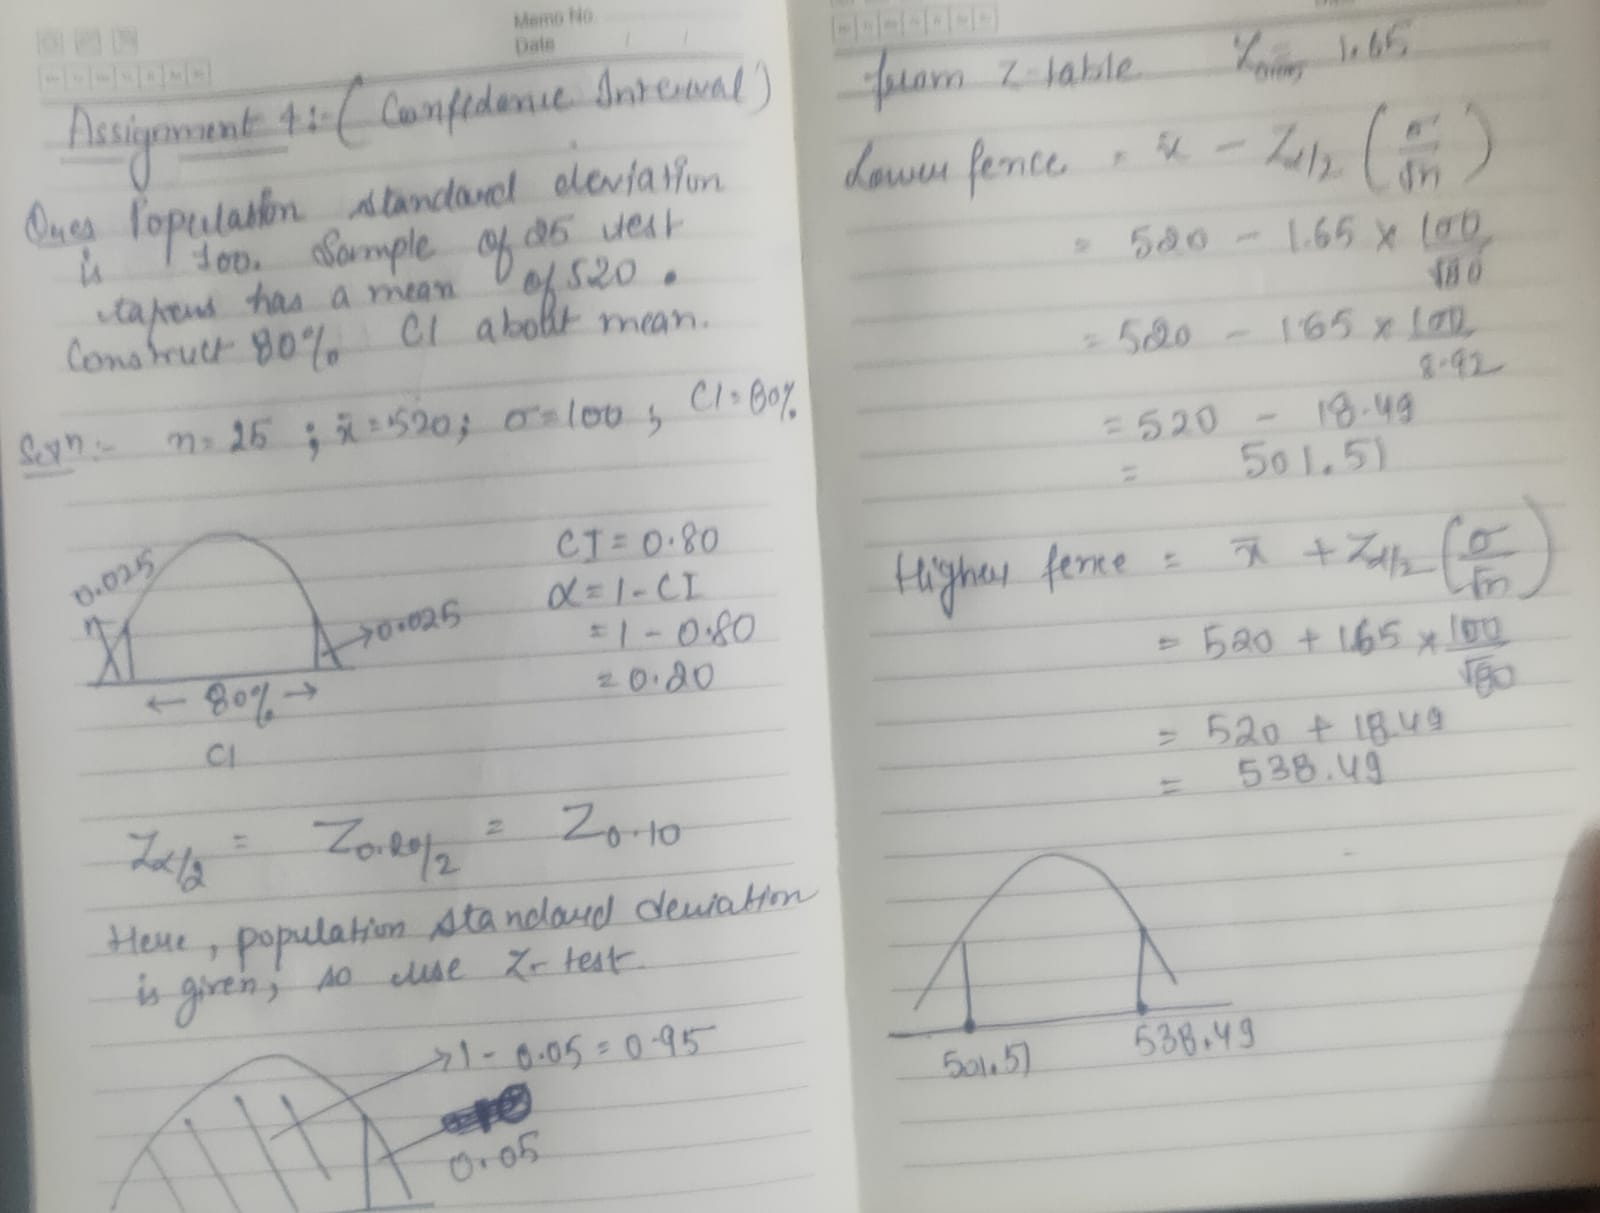 Memo No.
Date
Assignment 4:- (Confidence Interval)
Ques Population standard deviation
is 100. Sample of 25 test
takers has a mean of 520.
Construct 80% CI about mean.
Solⁿ:- n = 25 ; x̄ = 520; σ = 100 ; CI = 80%
0.025
0.025
← 80% →
CI
CI = 0.80
α = 1 - CI
= 1 - 0.80
= 0.20
Zα/2 = Z0.20/2 = Z0.10
Here, population standard deviation
is given, so use Z-test.
→ 1 - 0.05 = 0.95
0.05
from Z-table 1.65
Lower fence = x̄ - Zα/2 (σ/√n)
= 520 - 1.65 × 100/√80
= 520 - 1.65 × 100/8.92
= 520 - 18.49
= 501.51
Higher fence = x̄ + Zα/2 (σ/√n)
= 520 + 1.65 × 100/√80
= 520 + 18.49
= 538.49
501.51
538.49